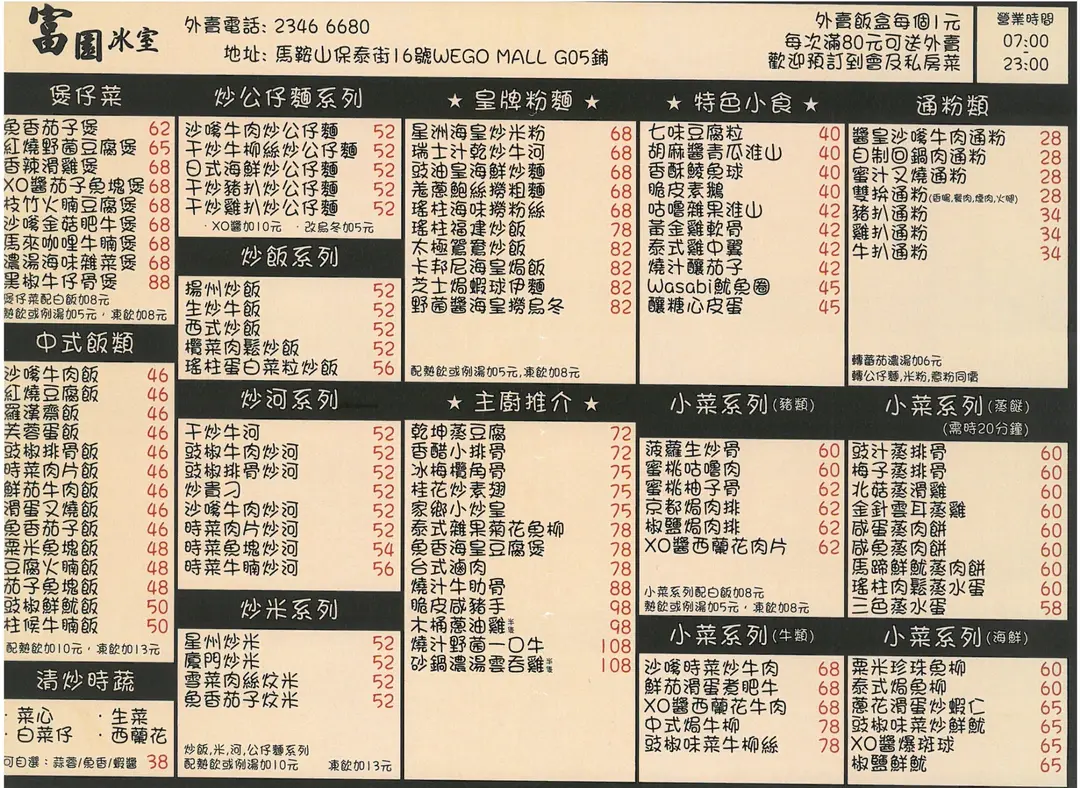 富園冰室
外賣電話: 2346 6680
地址: 馬鞍山保泰街16號WEGO MALL G05鋪
外賣飯盒每個1元
每次滿80元可送外賣
歡迎預訂到會及私房菜
營業時間
07:00
-
23:00
煲仔菜
魚香茄子煲 62
紅燒野菌豆腐煲 65
香辣滑雞煲 68
XO醬茄子魚塊煲 68
枝竹火腩豆腐煲 68
沙嗲金菇肥牛煲 68
馬來咖哩牛腩煲 68
濃湯海味雜菜煲 68
黑椒牛仔骨煲 88
煲仔菜配白飯加8元
熱飲或例湯加5元，凍飲加8元
中式飯類
沙嗲牛肉飯 46
紅燒豆腐飯 46
羅漢齋飯 46
芙蓉蛋飯 46
豉椒排骨飯 46
時菜肉片飯 46
鮮茄牛肉飯 46
滑蛋叉燒飯 46
魚香茄子飯 46
粟米魚塊飯 48
豆腐火腩飯 48
茄子魚塊飯 48
豉椒鮮魷飯 50
柱候牛腩飯 50
配熱飲加10元，凍飲加13元
清炒時蔬
· 菜心 · 生菜
· 白菜仔 · 西蘭花
可自選：蒜蓉/魚香/蝦醬 38
炒公仔麵系列
沙嗲牛肉炒公仔麵 52
干炒牛柳絲炒公仔麵 52
日式海鮮炒公仔麵 52
干炒豬扒炒公仔麵 52
干炒雞扒炒公仔麵 52
· XO醬加10元 · 改烏冬加5元
炒飯系列
揚州炒飯 52
生炒牛飯 52
西式炒飯 52
欖菜肉鬆炒飯 52
瑤柱蛋白菜粒炒飯 56
炒河系列
干炒牛河 52
豉椒牛肉炒河 52
豉椒排骨炒河 52
炒貴刁 52
沙嗲牛肉炒河 52
時菜肉片炒河 52
時菜魚塊炒河 54
時菜牛腩炒河 56
炒米系列
星州炒米 52
廈門炒米 52
雪菜肉絲炆米 52
魚香茄子炆米 52
炒飯,米,河,公仔麵系列
配熱飲或例湯加10元 凍飲加13元
★ 皇牌粉麵 ★
星洲海皇炒米粉 68
瑞士汁乾炒牛河 68
豉油皇海鮮炒麵 68
羗蔥鮑絲撈粗麵 68
瑤柱海味撈粉絲 68
瑤柱福建炒飯 78
太極鴛鴦炒飯 82
卡邦尼海皇焗飯 82
芝士焗蝦球伊麵 82
野菌醬海皇撈烏冬 82
配熱飲或例湯加5元,凍飲加8元
★ 主廚推介 ★
乾坤蒸豆腐 72
香醋小排骨 72
冰梅欖角骨 75
桂花炒素翅 75
家鄉小炒皇 75
泰式雜果菊花魚柳 78
魚香海皇豆腐煲 78
台式滷肉 78
燒汁牛肋骨 88
脆皮咸豬手 98
木桶蔥油雞半隻 98
燒汁野菌一口牛 108
砂鍋濃湯雲吞雞半隻 108
★ 特色小食 ★
七味豆腐粒 40
胡麻醬青瓜淮山 40
香酥鯪魚球 40
脆皮素鵝 40
咕嚕雜果淮山 42
黃金雞軟骨 42
泰式雞中翼 42
燒汁釀茄子 42
Wasabi魷魚圈 45
釀糖心皮蛋 45
小菜系列(豬類)
菠蘿生炒骨 60
蜜桃咕嚕肉 60
蜜桃柚子骨 62
京都焗肉排 62
椒鹽焗肉排 62
XO醬西蘭花肉片 62
小菜系列配白飯加8元
熱飲或例湯加5元，凍飲加8元
小菜系列(牛類)
沙嗲時菜炒牛肉 68
鮮茄滑蛋煮肥牛 68
XO醬西蘭花牛肉 68
中式焗牛柳 78
豉椒味菜牛柳絲 78
通粉類
醬皇沙嗲牛肉通粉 28
自制回鍋肉通粉 28
蜜汁叉燒通粉 28
雙拚通粉(香腸,餐肉,煙肉,火腿) 28
豬扒通粉 34
雞扒通粉 34
牛扒通粉 34
轉蕃茄濃湯加6元
轉公仔麵,米粉,意粉同價
小菜系列(蒸餸)
(需時20分鐘)
豉汁蒸排骨 60
梅子蒸排骨 60
北菇蒸滑雞 60
金針雲耳蒸雞 60
咸蛋蒸肉餅 60
咸魚蒸肉餅 60
馬蹄鮮魷蒸肉餅 60
瑤柱肉鬆蒸水蛋 60
三色蒸水蛋 58
小菜系列(海鮮)
粟米珍珠魚柳 60
泰式焗魚柳 60
蔥花滑蛋炒蝦仁 65
豉椒味菜炒鮮魷 65
XO醬爆斑球 65
椒鹽鮮魷 65